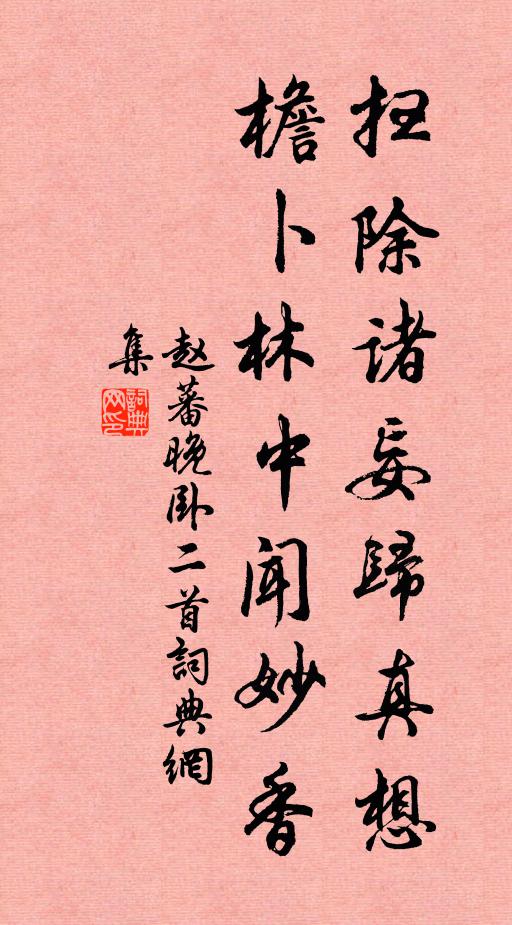 扫除诸妄歸真想
檐卜林中闻妙香
赵蕃晚卧二首詞典網
集
詞典
网印